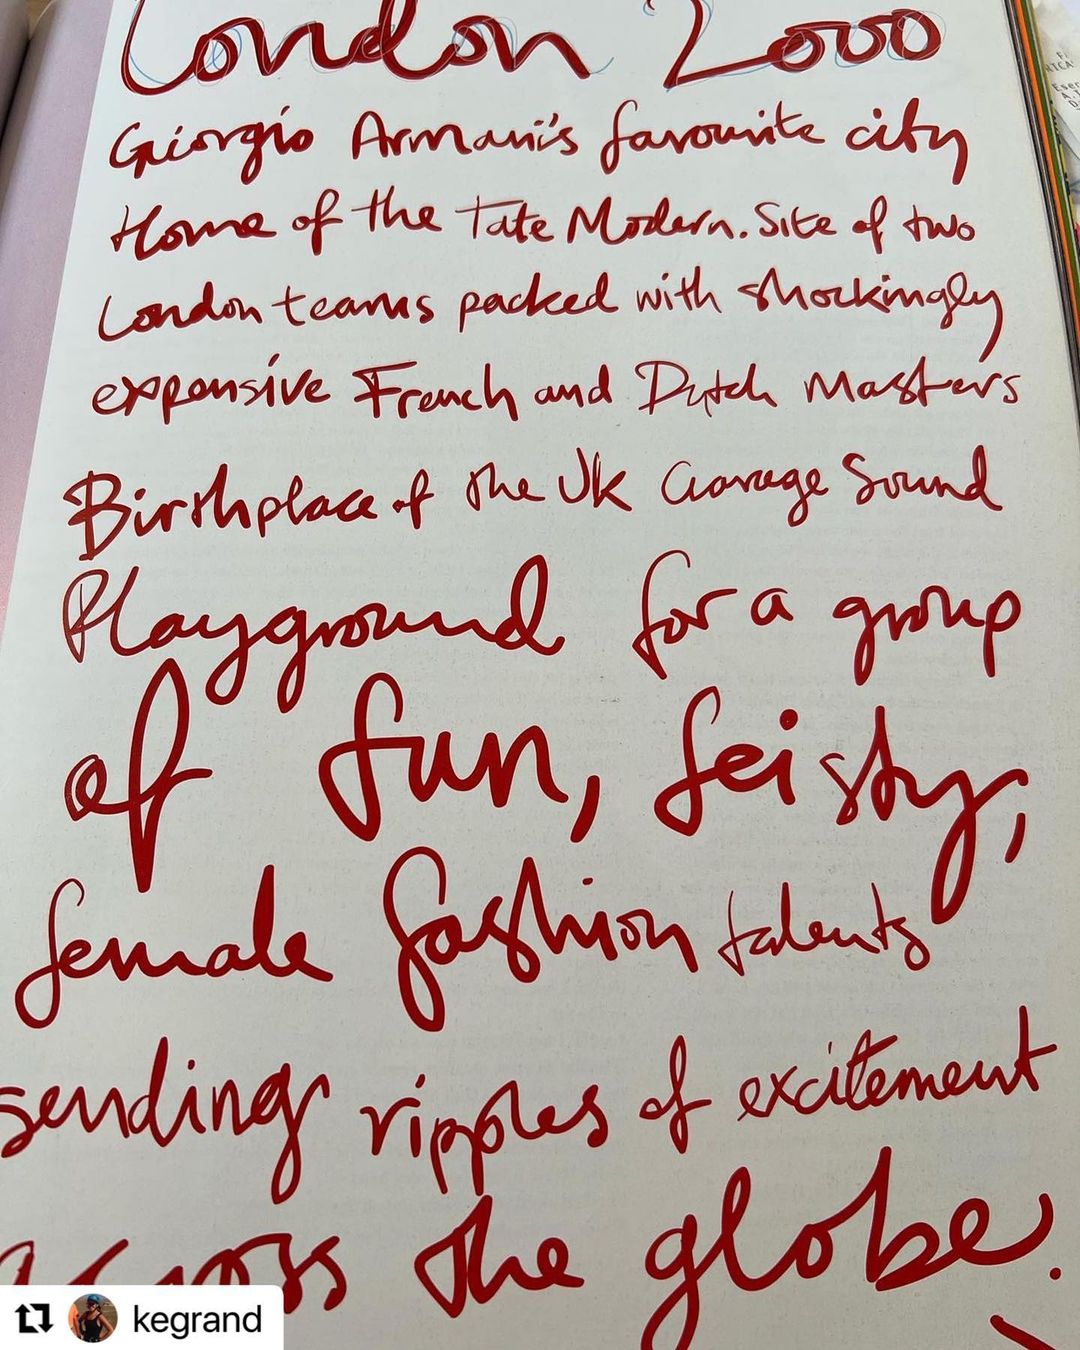 London 2000
Giorgio Armani's favourite city
Home of the Tate Modern. Site of two
London teams packed with shockingly
expensive French and Dutch Masters
Birthplace of the UK Garage Sound
Playground for a group
of fun, feisty,
female fashion talents
sending ripples of excitement
across the globe.
kegrand